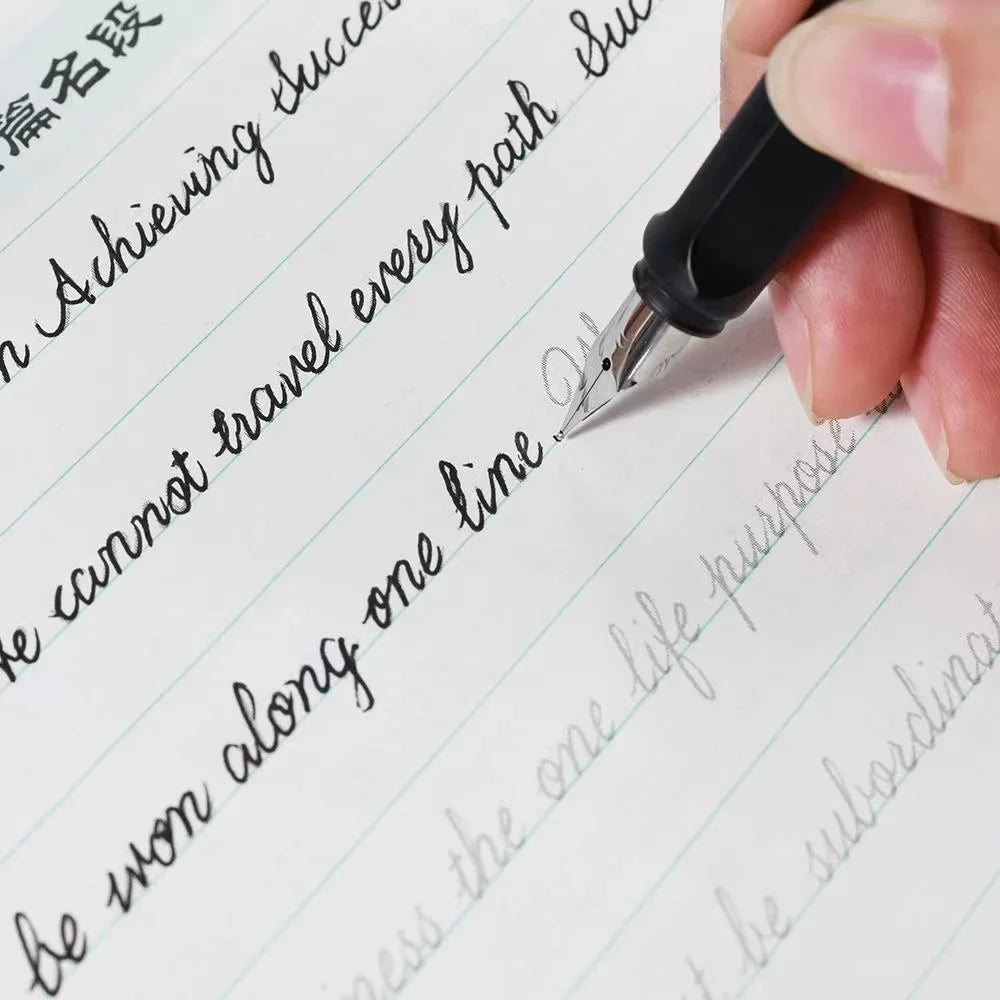 篇名段
Achieving Succe
cannot travel every path Suc
be won along one line
ness the one life purpose
be subordinat